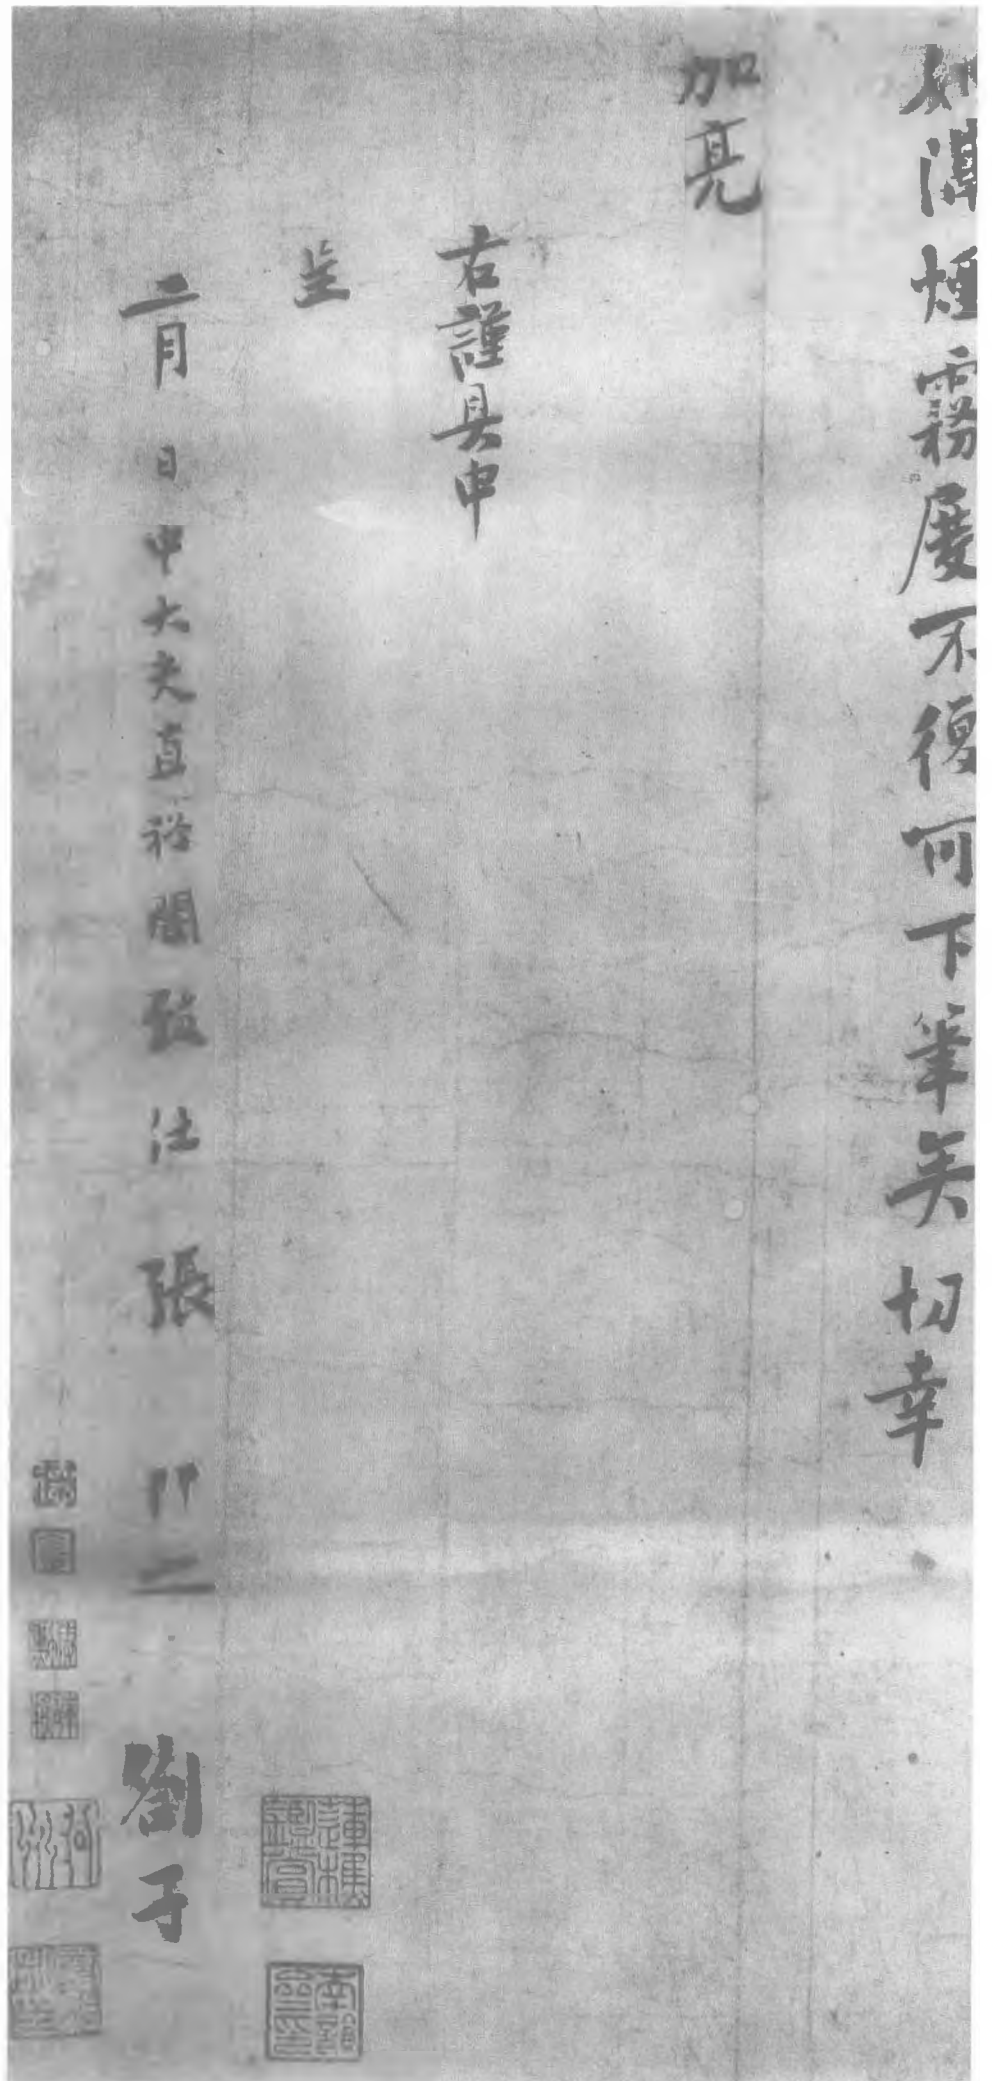 如潭煙霧屢不復可下筆矣切幸
加亮
右謹具申
呈
二月 日 中大夫直祕閣致仕張 劄子